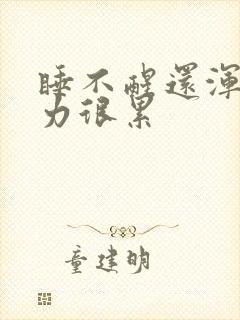 睡不醒還渾
力很累
童建明